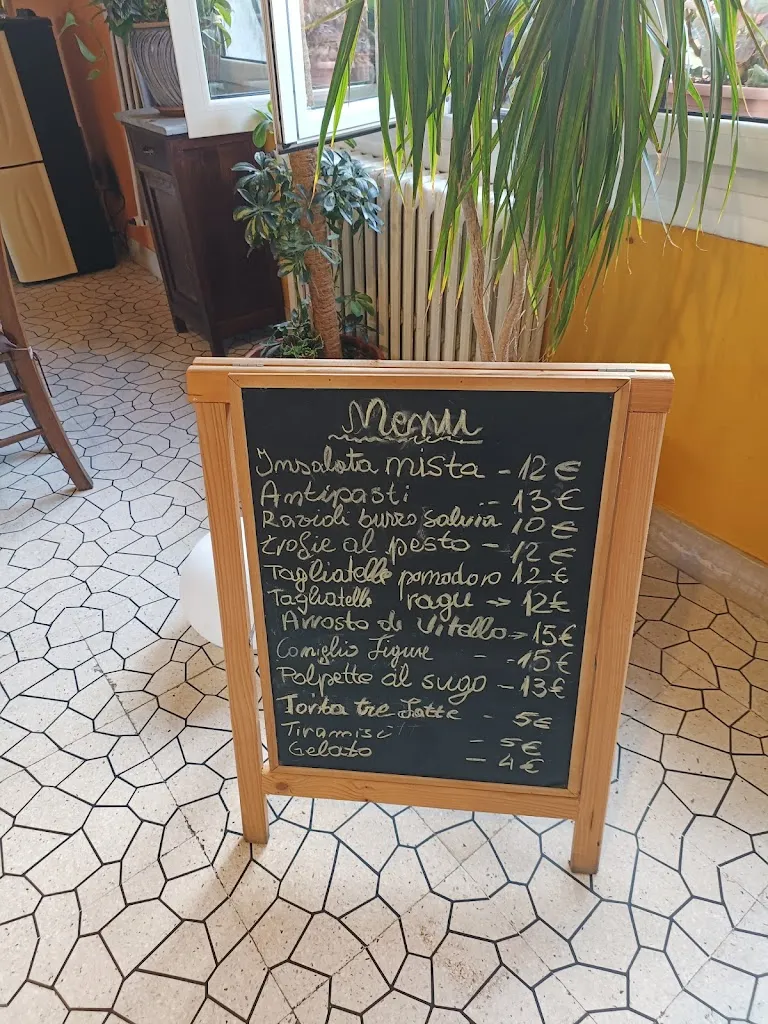 Menu
Insalata mista - 12 €
Antipasti - 13 €
Ravioli burro salvia 10 €
trofie al pesto - 12 €
Tagliatelle pomodoro 12 €
Tagliatelle ragu → 12 €
Arrosto di Vitello → 15 €
Coniglio Figure - - 15 €
Polpette al sugo - 13 €
Torta tre Latte - 5 €
Tiramisù - 5 €
Gelato - 4 €